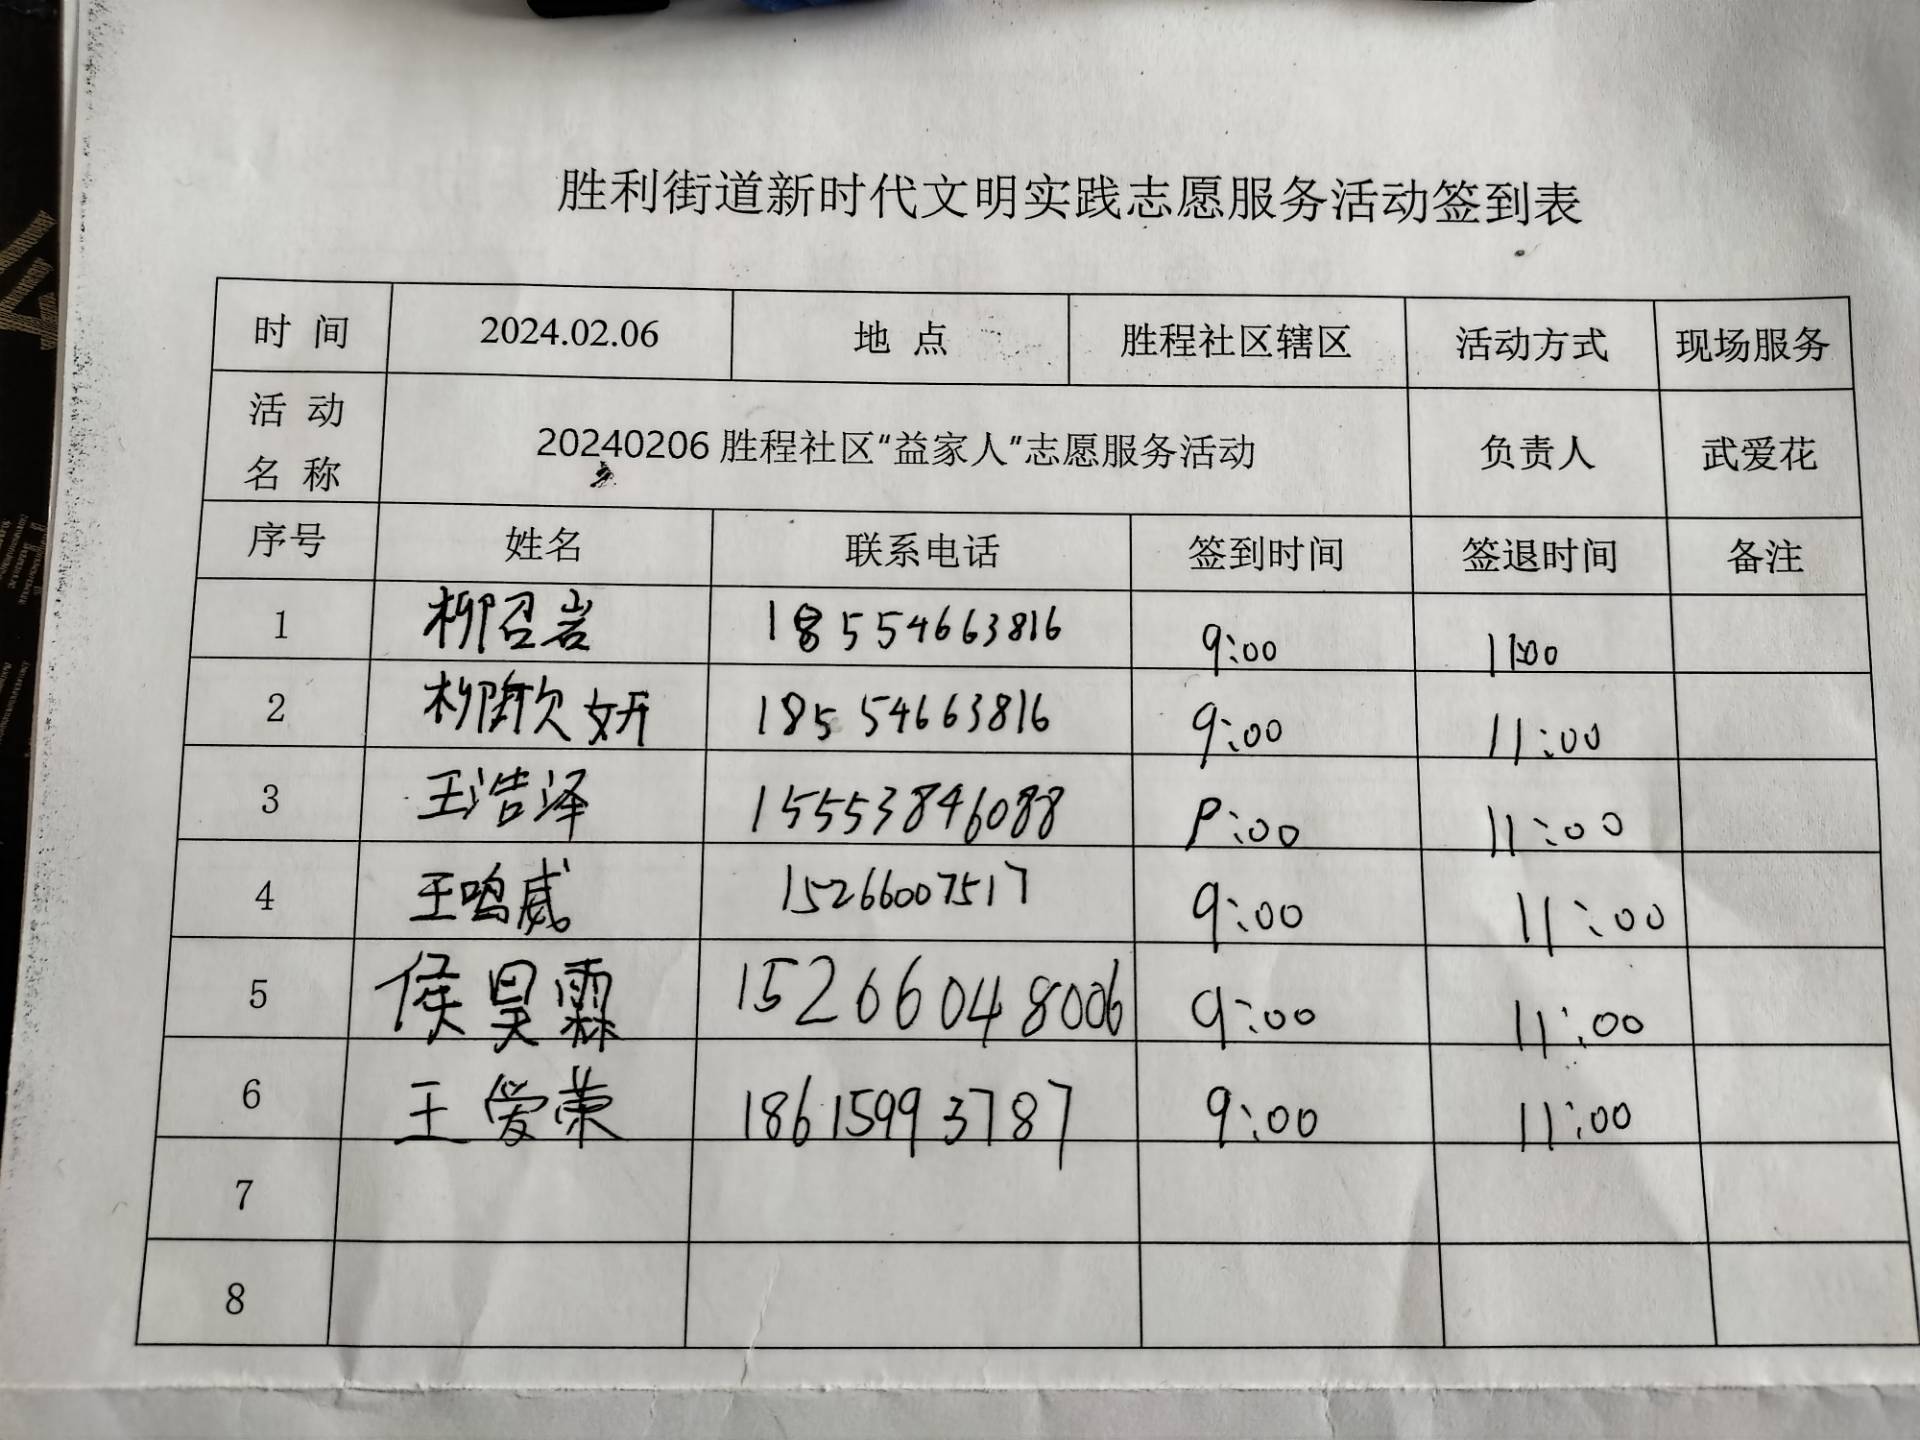 胜利街道新时代文明实践志愿服务活动签到表
时 间 2024.02.06 地 点 胜程社区辖区 活动方式 现场服务
活 动
名 称 20240206胜程社区“益家人”志愿服务活动 负责人 武爱花
序号 姓名 联系电话 签到时间 签退时间 备注
1 柳召岩 18554663816 9:00 11:00
2 柳 欣妍 18554663816 9:00 11:00
3 王浩泽 15553846088 9:00 11:00
4 王鸣威 15266007517 9:00 11:00
5 侯昊霖 15266048006 9:00 11:00
6 王爱荣 18615993787 9:00 11:00
7
8